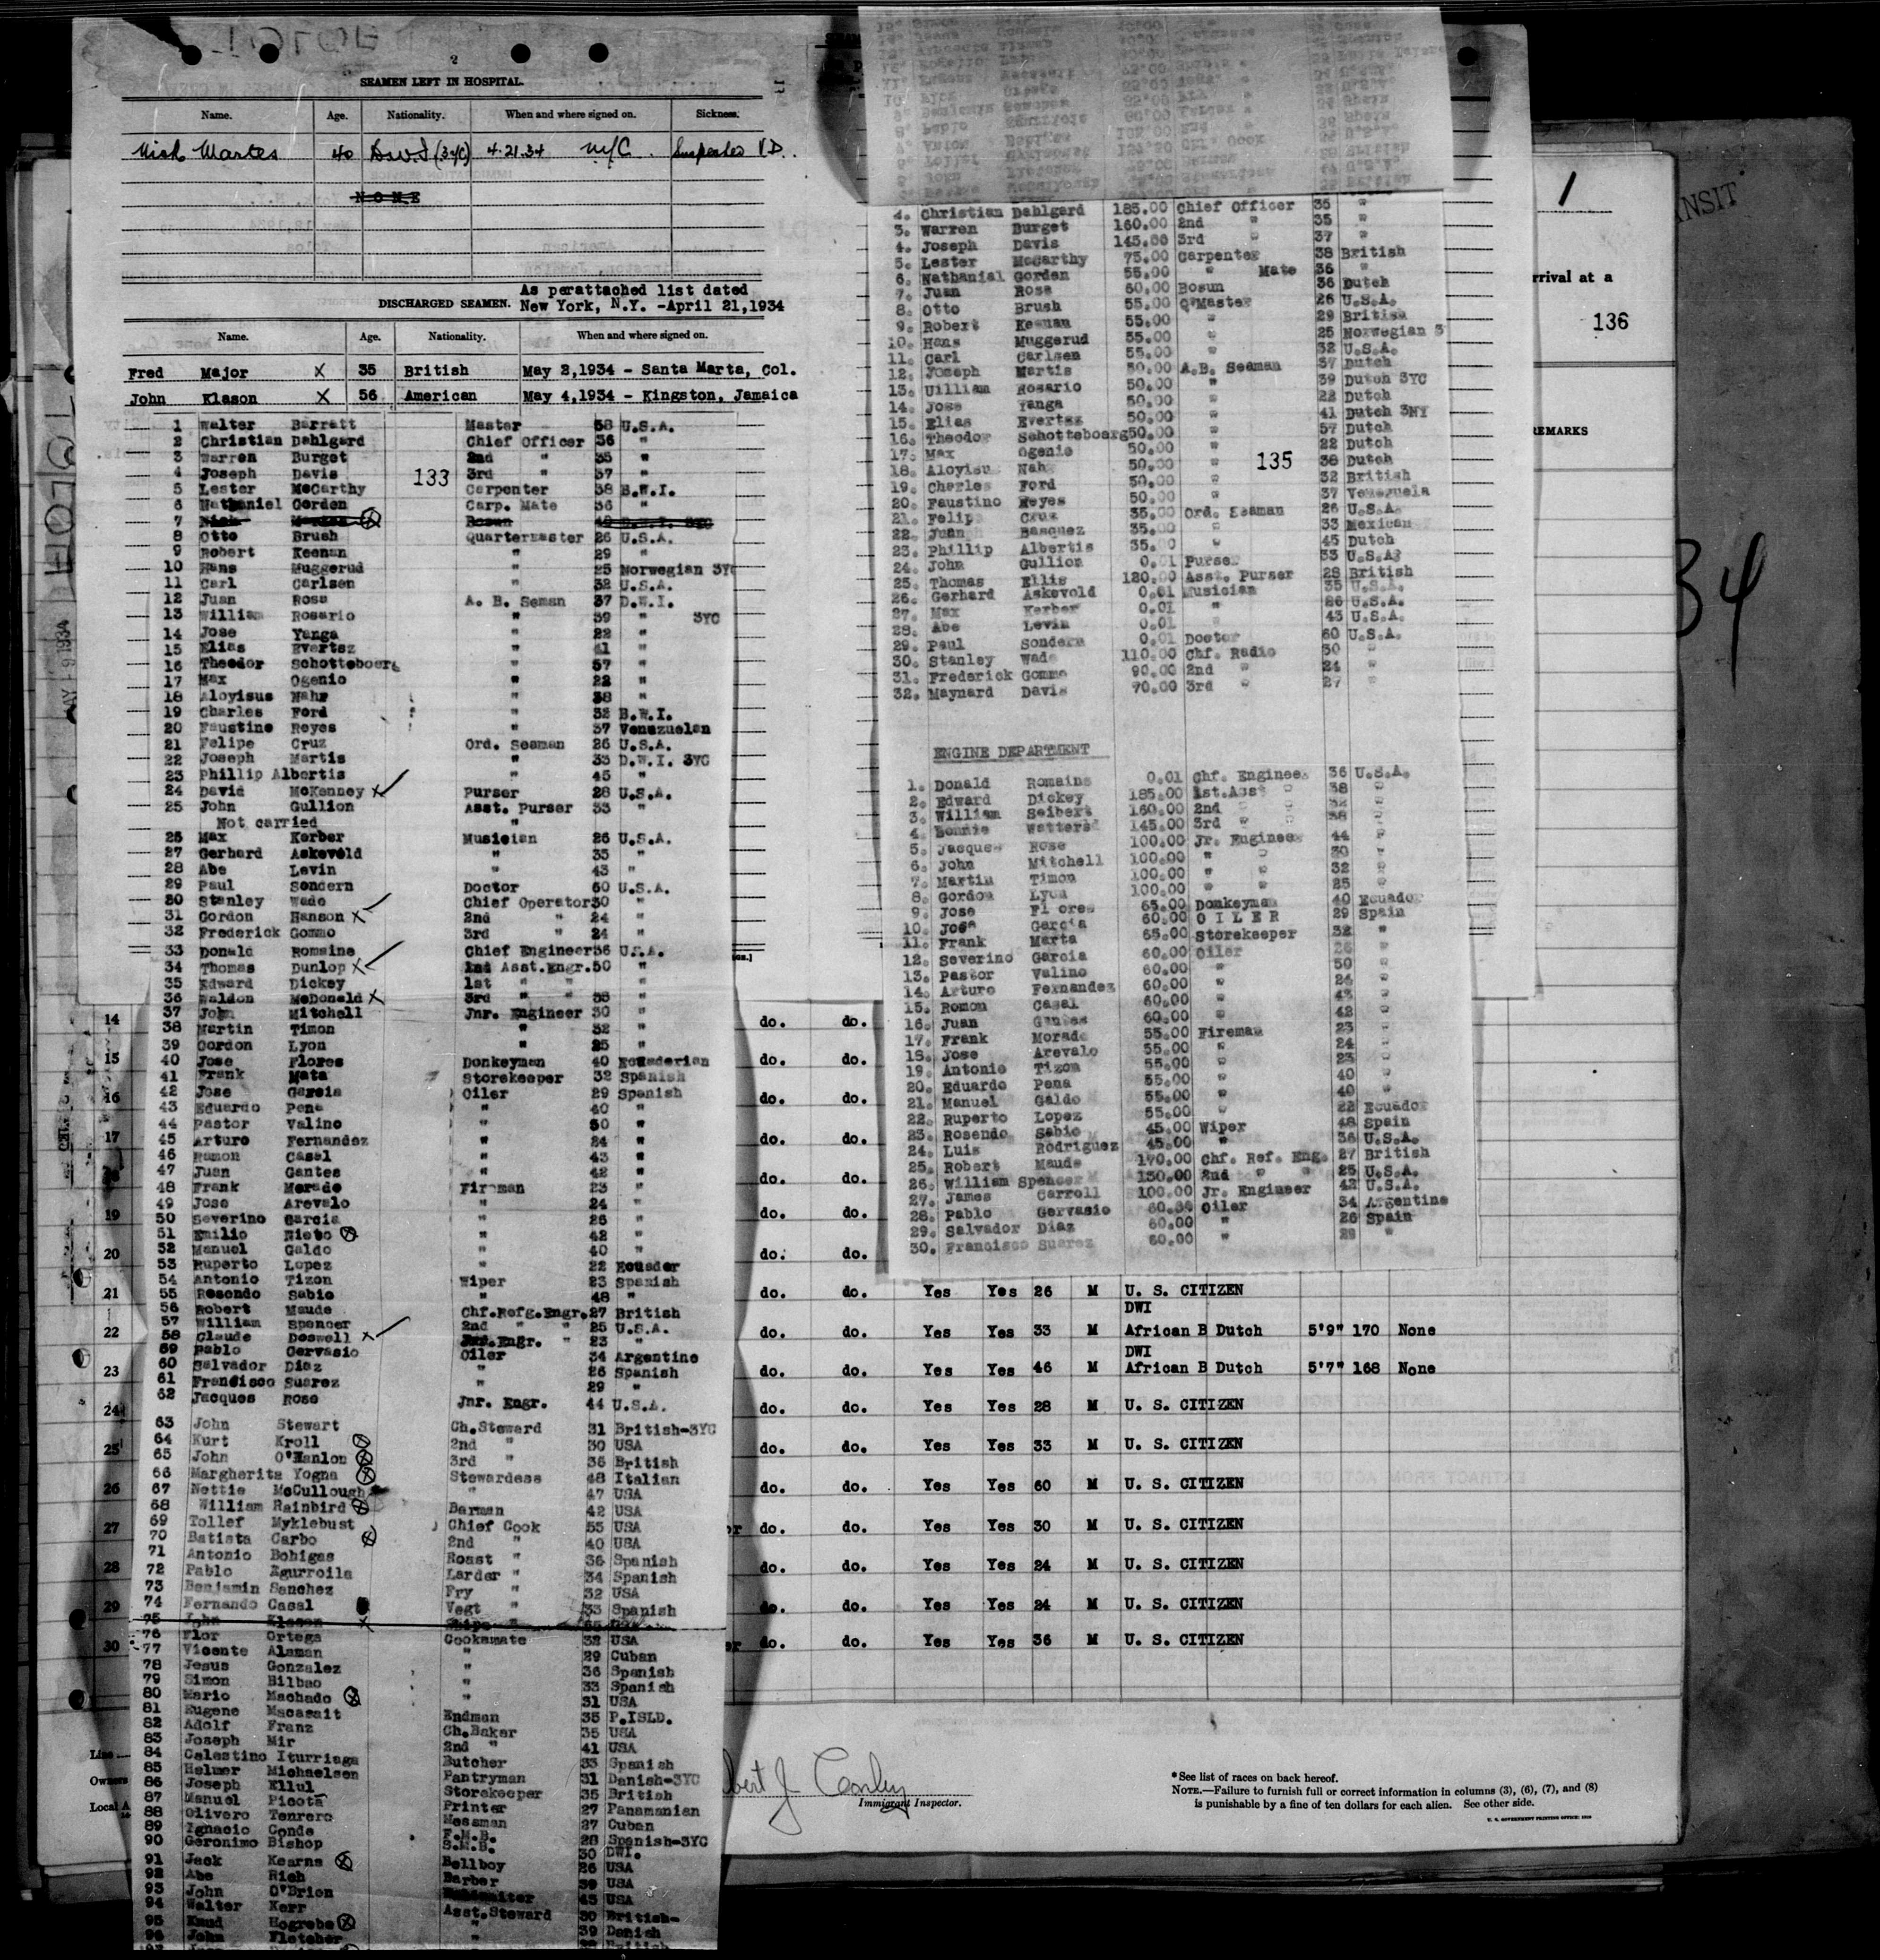 2
SEAMEN LEFT IN HOSPITAL.
Name. Age. Nationality. When and where signed on. Sickness.
Martes 40 D.W.I (3yc) 4.21.34 N/C. Suspected V.D.
NONE
DISCHARGED SEAMEN. As perattached list dated
New York, N.Y. -April 21,1934
Name. Age. Nationality. When and where signed on.
Fred Major X 35 British May 2,1934 - Santa Marta, Col.
John Klason X 56 American May 4,1934 - Kingston, Jamaica
1 Walter Barrett Master 58 U.S.A.
2 Christian Dahlgard Chief Officer 36 "
3 Warren Burget 2nd " 35 "
4 Joseph Davis 3rd " 37 "
133
5 Lester McCarthy Carpenter 38 B.W.I.
6 Nathaniel Gordon Carp. Mate 36 "
7 Bosun
8 Otto Brush Quartermaster 26 U.S.A.
9 Robert Keenan " 29 "
10 Hans Muggerud " 25 Norwegian 3YC
11 Carl Carlsen " 32 U.S.A.
12 Juan Rosa A. B. Seman 37 D.W.I.
13 William Rosario " 39 " 3YC
14 Jose Yanga " 22 "
15 Elias Evertsz " 41 "
16 Theodor Schotteboerg " 57 "
17 Max Ogenio " 22 "
18 Aloyisus Nahr " 38 "
19 Charles Ford " 32 B.W.I.
20 Faustino Reyes " 37 Venezuelan
21 Felipe Cruz Ord. Seaman 26 U.S.A.
22 Joseph Martis " 33 D.W.I. 3YC
23 Phillip Albertis " 45 "
24 David McKenney X Purser 28 U.S.A.
25 John Gullion Asst. Purser 33 "
Not carried "
26 Max Kerber Musician 26 U.S.A.
27 Gerhard Askevold " 35 "
28 Abe Levin " 43 "
29 Paul Sondern Doctor 60 U.S.A.
30 Stanley Wade Chief Operator 30 "
31 Gordon Hanson X 2nd " 24 "
32 Frederick Gommo 3rd " 24 "
33 Donald Romaine Chief Engineer 36 U.S.A.
34 Thomas Dunlop X 2nd Asst.Engr. 50 "
35 Edward Dickey 1st " " "
36 Waldon McDonald X 3rd " " 38 "
37 John Mitchell Jnr. Engineer 30 "
38 Martin Timon " 32 "
39 Gordon Lyon " 25 "
40 Jose Flores Donkeyman 40 Ecuaderian
41 Frank Mata Storekeeper 32 Spanish
42 Jose Garcia Oiler 29 Spanish
43 Eduardo Pena " 40 "
44 Pastor Valino " 50 "
45 Arturo Fernandez " 24 "
46 Ramon Casal " 43 "
47 Juan Gantes " 42 "
48 Frank Morado Fireman 23 "
49 Jose Arevalo " 24 "
50 Severino Garcia " 26 "
51 Emilio Nieto " 42 "
52 Manuel Galdo " 40 "
53 Ruperto Lopez " 22 Ecuador
54 Antonio Tizon Wiper 23 Spanish
55 Rosendo Sabio " 48 "
56 Robert Maude Chf.Refg.Engr. 27 British
57 William Spencer 2nd " " 25 U.S.A.
58 Claude Doswell X Engr. " 23 "
59 Pablo Gervasio Oiler 34 Argentine
60 Salvador Diaz " 26 Spanish
61 Francisco Suarez " 29 "
62 Jacques Rose Jnr. Engr. 44 U.S.A.
63 John Stewart Ch.Steward 31 British-3YC
64 Kurt Kroll 2nd " 30 USA
65 John O'Hanlon 3rd " 36 British
66 Margherita Yogna Stewardess 48 Italian
67 Nettie McCullough " 47 USA
68 William Rainbird Barman 42 USA
69 Tollef Myklebust Chief Cook 55 USA
70 Batista Carbo 2nd " 40 USA
71 Antonio Bohigas Roast " 36 Spanish
72 Pablo Agurroila Larder " 34 Spanish
73 Benjamin Sanchez Fry " 32 USA
74 Fernando Casal Vegt " 33 Spanish
75 John Klason X
76 Flor Ortega Cooksmate 32 USA
77 Vicente Alaman " 29 Cuban
78 Jesus Gonzalez " 36 Spanish
79 Simon Bilbao " 33 Spanish
80 Mario Machado " 31 USA
81 Eugene Macasait Endman 35 P.ISLD.
82 Adolf Franz Ch.Baker 35 USA
83 Joseph Mir 2nd " 41 USA
84 Celestino Iturriaga Butcher 33 Spanish
85 Helmer Michaelsen Pantryman 31 Danish-3YC
86 Joseph Ellul Storekeeper 35 British
87 Manuel Picota Printer 27 Panamanian
88 Olivero Tenrero Messman 27 Cuban
89 Ignacio Conde F.M.B. 28 Spanish-3YC
90 Geronimo Bishop S.M.B. 30 DWI.
91 Jack Kearns Bellboy 26 USA
92 Abe Rich Barber 39 USA
93 John O'Brien 45 USA
94 Walter Kerr Asst.Steward 30 British-
95 Knud Hogrebe " 39 Danish
96 John Fletcher "
4. Christian Dahlgard 185.00 Chief Officer 35 "
3. Warren Burget 160.00 2nd " 35 "
4. Joseph Davis 145.00 3rd " 37 "
5. Lester McCarthy 75.00 Carpenter 38 British
6. Nathanial Gorden 55.00 " Mate 36 "
7. Juan Rosa 60.00 Bosun 36 Dutch
8. Otto Brush 55.00 Q'Master 26 U.S.A.
9. Robert Keenan 55.00 " 29 British
10. Hans Muggerud 55.00 " 25 Norwegian 3
11. Carl Carlsen 55.00 " 32 U.S.A.
12. Joseph Martis 50.00 A.B. Seaman 37 Dutch
13. William Rosario 50.00 " 39 Dutch 3YC
14. Jose Yanga 50.00 " 22 Dutch
15. Elias Evertsz 50.00 " 41 Dutch 3NY
16. Theodor Schotteboerg 50.00 " 57 Dutch
17. Max Ogenio 50.00 " 22 Dutch
135
18. Aloyisu Nahr 50.00 " 38 Dutch
19. Charles Ford 50.00 " 32 British
20. Faustino Reyes 50.00 " 37 Venezuela
21. Felip Cruz 35.00 Ord. Seaman 26 U.S.A.
22. Juan Basquez 35.00 " 33 Mexican
23. Phillip Albertis 35.00 " 45 Dutch
24. John Gullion 0.01 Purser 33 U.S.A.
25. Thomas Ellis 120.00 Asst. Purser 28 British
26. Gerhard Askevold 0.01 Musician 35 U.S.A.
27. Max Kerber 0.01 " 26 U.S.A.
28. Abe Levin 0.01 " 43 U.S.A.
29. Paul Sondern 0.01 Doctor 60 U.S.A.
30. Stanley Wade 110.00 Chf. Radio 30 "
31. Frederick Gommo 90.00 2nd " 24 "
32. Maynard Davis 70.00 3rd " 27 "
ENGINE DEPARTMENT
1. Donald Romains 0.01 Chf. Engineer 36 U.S.A.
2. Edward Dickey 185.00 1st.Asst " 38 "
3. William Seibert 160.00 2nd " " 32 "
4. Watters 145.00 3rd " " 38 "
5. Jacques Rose 100.00 Jr. Engineer 44 "
6. John Mitchell 100.00 " " 30 "
7. Martin Timon 100.00 " " 32 "
8. Gordon Lyon 100.00 " " 25 "
9. Jose Flores 65.00 Donkeyman 40 Ecuador
10. Jose Garcia 60.00 OILER 29 Spain
11. Frank Marta 65.00 Storekeeper 32 "
12. Severino Garcia 60.00 Oiler 26 "
13. Pastor Valino 60.00 " 50 "
14. Arturo Fernandez 60.00 " 24 "
15. Romon Casal 60.00 " 43 "
16. Juan Gantes 60.00 " 42 "
17. Frank Morado 55.00 Fireman 23 "
18. Jose Arevalo 55.00 " 24 "
19. Antonio Tizon 55.00 " 23 "
20. Eduardo Pena 55.00 " 40 "
21. Manuel Galdo 55.00 " 40 "
22. Ruperto Lopez 55.00 " 22 Ecuador
23. Rosendo Sabio 45.00 Wiper 48 Spain
24. Luis Rodriguez 45.00 " 36 U.S.A.
25. Robert Maude 170.00 Chf. Ref. Eng. 27 British
26. William Spencer 130.00 2nd " " 25 U.S.A.
27. James Carroll 100.00 Jr. Engineer 42 U.S.A.
28. Pablo Gervasio 60.00 Oiler 34 Argentine
29. Salvador Diaz 60.00 " 26 Spain
30. Francisco Suarez 60.00 " 29 "
1
rrival at a
136
REMARKS
NSIT
34
14 do. do.
15 do. do.
16 do. do.
17 do. do.
do. do.
19 do. do.
20 do. do.
21 do. do. Yes Yes 26 M U. S. CITIZEN
DWI
22 do. do. Yes Yes 33 M African B Dutch 5'9" 170 None
DWI
23 do. do. Yes Yes 46 M African B Dutch 5'7" 168 None
24 do. do. Yes Yes 28 M U. S. CITIZEN
25 do. do. Yes Yes 33 M U. S. CITIZEN
26 do. do. Yes Yes 60 M U. S. CITIZEN
27 or do. do. Yes Yes 30 M U. S. CITIZEN
28 do. do. Yes Yes 24 M U. S. CITIZEN
29 do. do. Yes Yes 24 M U. S. CITIZEN
30 or do. do. Yes Yes 36 M U. S. CITIZEN
Line
Owners
Local A
bert J Conley
Immigrant Inspector.
*See list of races on back hereof.
NOTE.—Failure to furnish full or correct information in columns (3), (6), (7), and (8)
is punishable by a fine of ten dollars for each alien. See other side.
U. S. GOVERNMENT PRINTING OFFICE